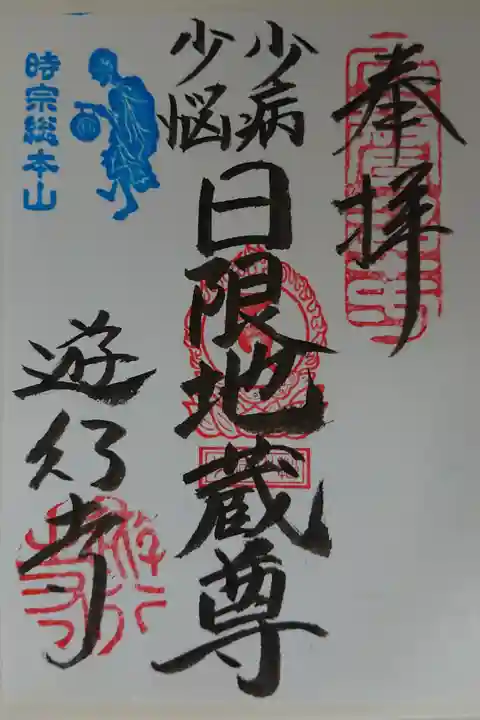 奉拝
少病
少悩
日限地蔵尊
時宗総本山
遊行寺